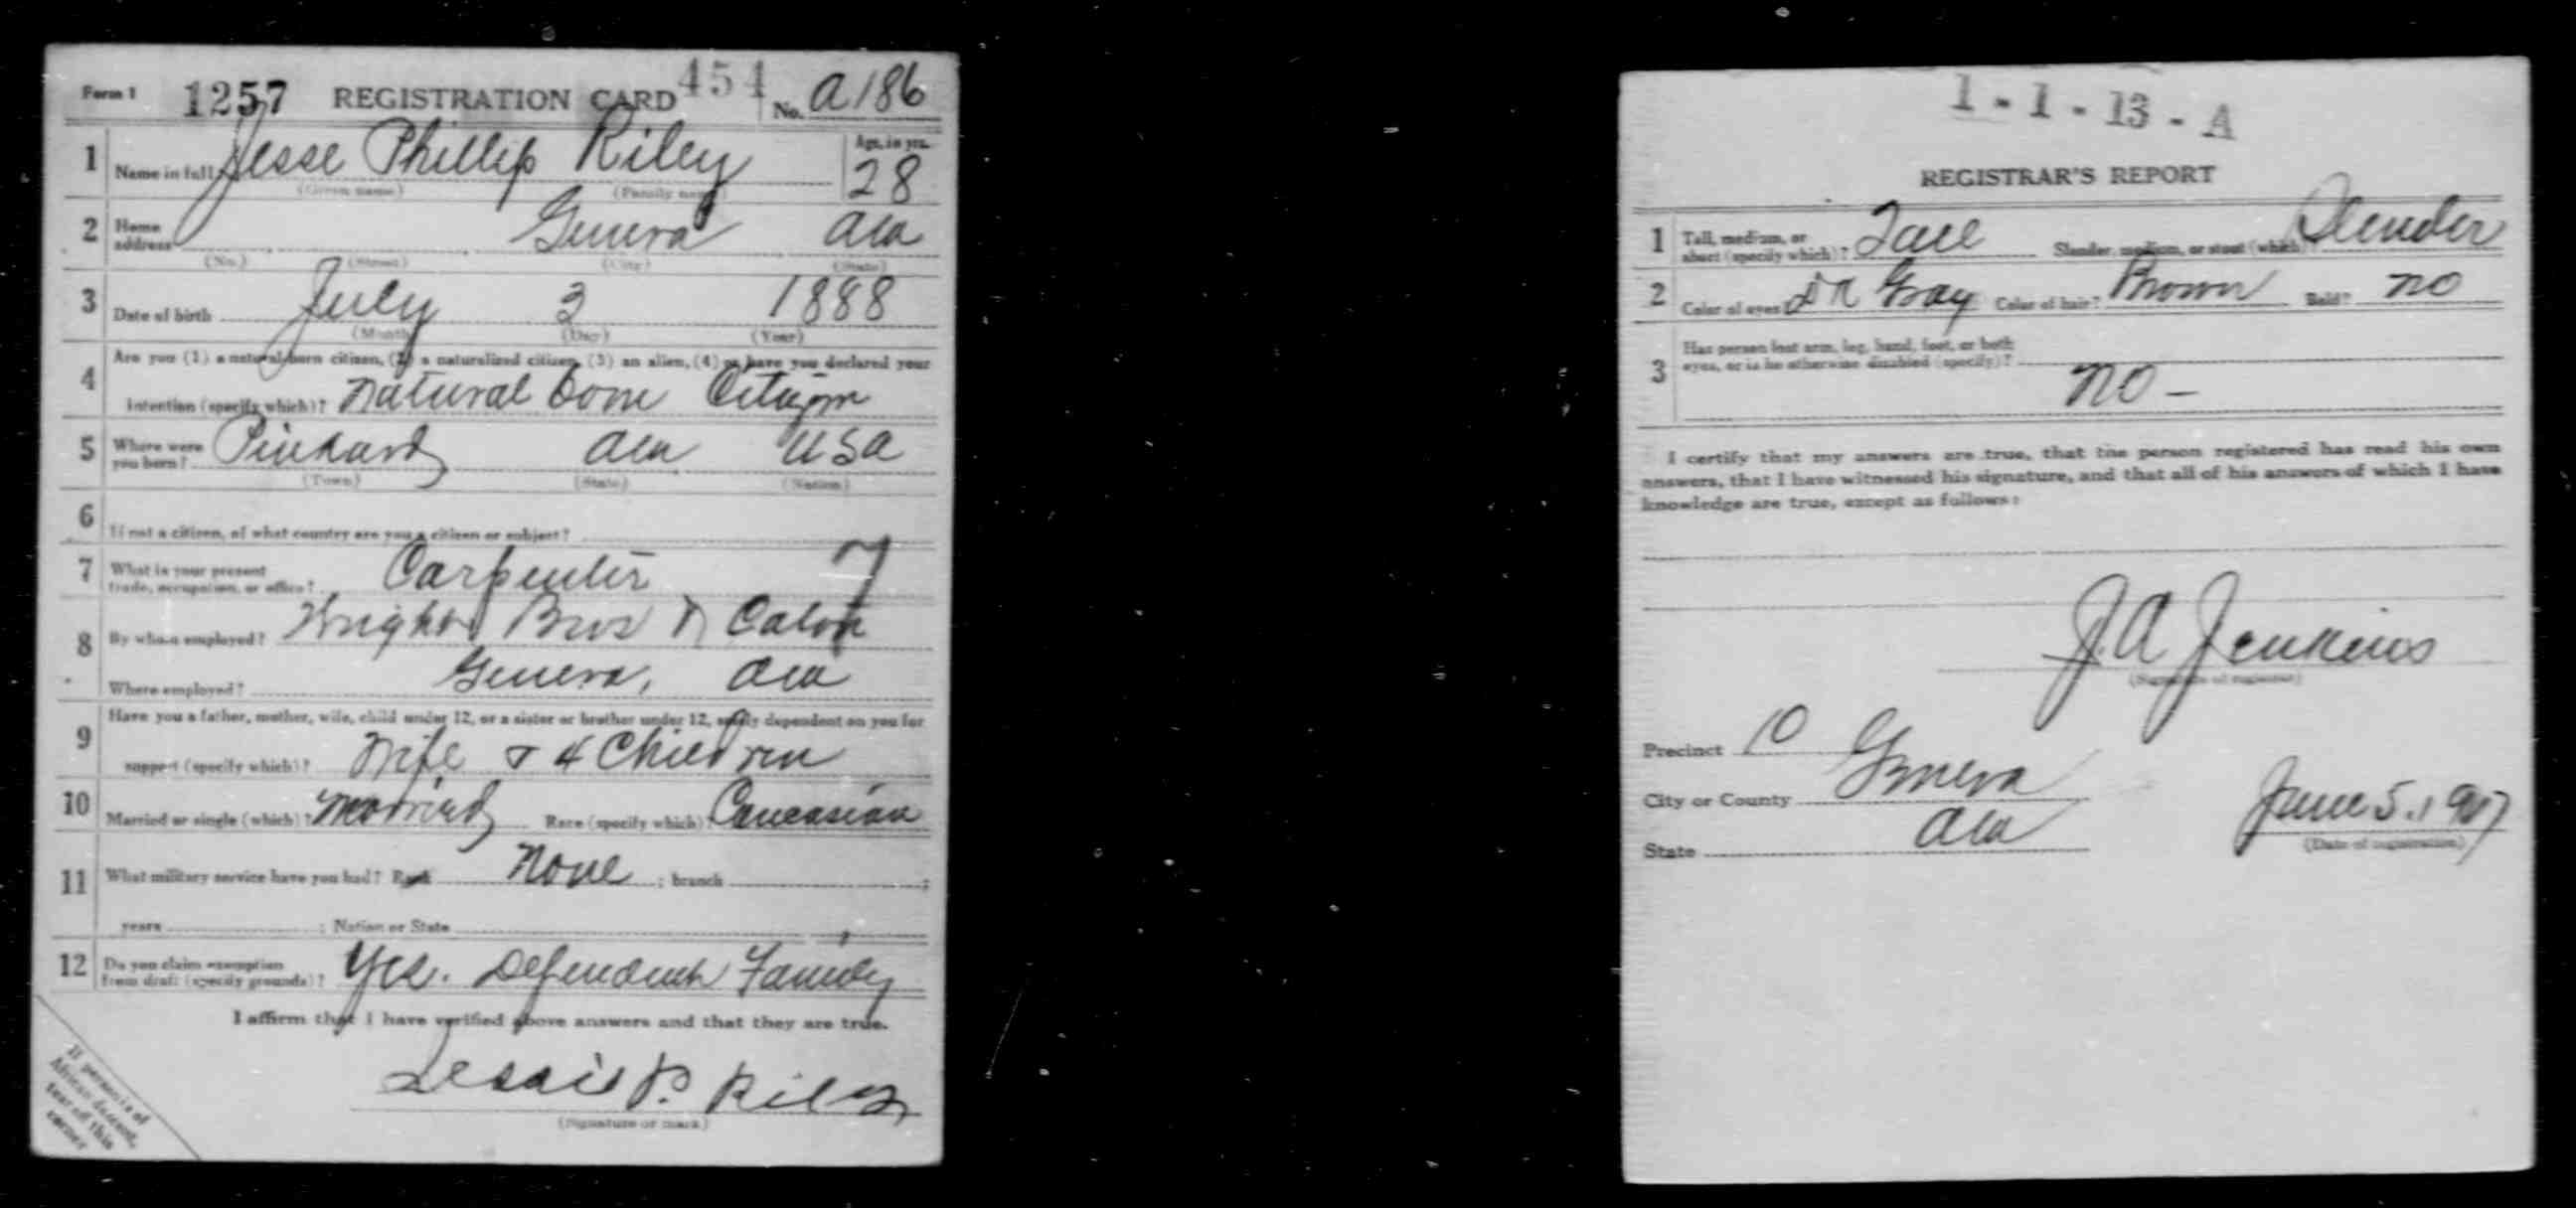 Form 1 1257 REGISTRATION CARD 454 No. A186
1 Name in full Jesse Phillip Riley Age, in yrs. 28
(Given name) (Family name)
2 Home address Geneva Ala
(No.) (Street) (City) (State)
3 Date of birth July 3 1888
(Month) (Day) (Year)
4 Are you (1) a natural-born citizen, (2) a naturalized citizen, (3) an alien, (4) or have you declared your
intention (specify which)? Natural born Citizen
5 Where were you born? Pinkard Ala USA
(Town) (State) (Nation)
6 If not a citizen, of what country are you a citizen or subject?
7 What is your present trade, occupation, or office? Carpenter 7
8 By whom employed? Wright Bros
Where employed? Geneva, Ala
9 Have you a father, mother, wife, child under 12, or a sister or brother under 12, solely dependent on you for
support (specify which)? Wife & 4 Children
10 Married or single (which)? Married Race (specify which)? Caucasian
11 What military service have you had? Rank None ; branch ;
years ; Nation or State
12 Do you claim exemption from draft (specify grounds)? Yes. Dependent Family
I affirm that I have verified above answers and that they are true.
P. Riley
(Signature or mark)
If person is of
African descent,
tear off this
corner
1-1-13-A
REGISTRAR'S REPORT
1 Tall, medium, or short (specify which)? Tall Slender, medium, or stout (which)? Slender
2 Color of eyes? Dk Gray Color of hair? Brown Bald? no
3 Has person lost arm, leg, hand, foot, or both
eyes, or is he otherwise disabled (specify)?
No -
I certify that my answers are true, that the person registered has read his own
answers, that I have witnessed his signature, and that all of his answers of which I have
knowledge are true, except as follows:
J. A. Jenkins
(Signature of registrar)
Precinct 10
City or County Geneva
State Ala
June 5. 1917
(Date of registration)